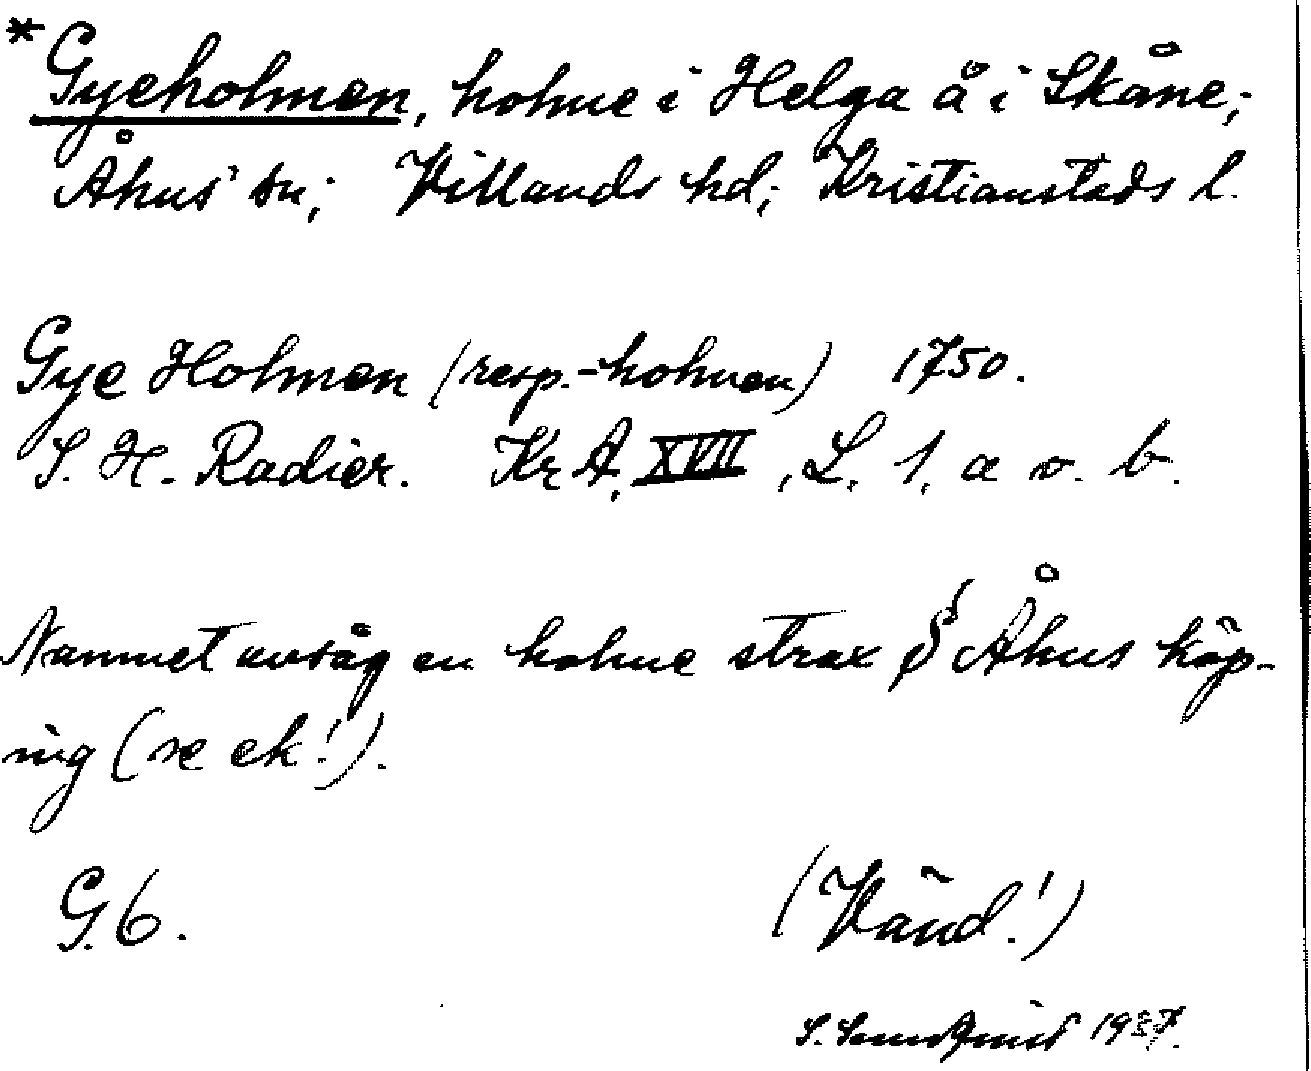 *Gyeholmen, holme i Helga å i Skåne;
Åhus' sn; Villands hd; Kristianstads l.
Gye Holmen (resp. -holmen) 1750.
S. H. Radier. Kr A, XVII, L. 1, a o. b.
Namnet avsåg en holme strax S Åhus köp-
ing (se ek!).
G. 6.
(Vänd!)
S. Sundqvist 1937.